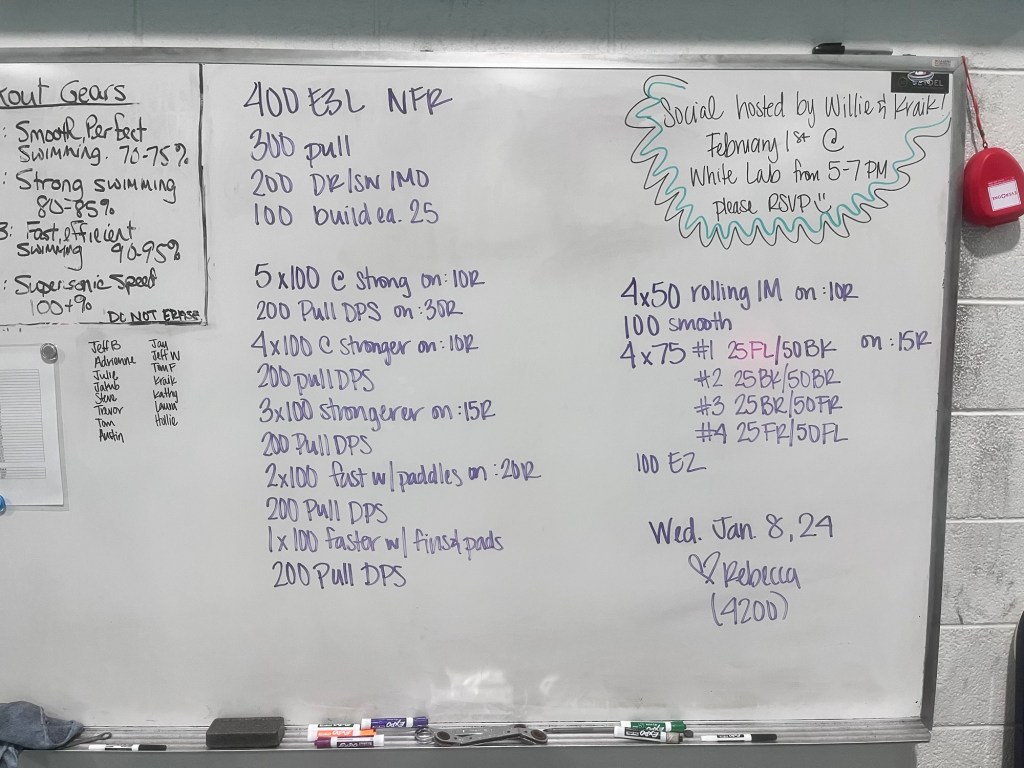 kout Gears
: Smooth, Perfect
Swimming. 70-75%
: Strong swimming
80-85%
3: Fast, efficient
Swimming 90-95%
: Supersonic Speed
100+%
DO NOT ERASE
Jeff B
Adrianne
Julie
Jakub
Steve
Trevor
Tom
Austin
Jay
Jeff W
Tom F
Kraik
Kathy
Laura
Hollie
400 E3L NFR
300 pull
200 DR/SW IMO
100 build ea. 25
5x100 C strong on :10R
200 Pull DPS on :30R
4x100 C stronger on :10R
200 pull DPS
3x100 strongerer on :15R
200 Pull DPS
2x100 fast w/paddles on :20R
200 Pull DPS
1x100 faster w/ fins & pads
200 Pull DPS
Social hosted by Willie & Kraik!
February 1st @
White Lab from 5-7 PM
please RSVP
4x50 rolling IM on :10R
100 smooth
4x75 #1 25FL/50BK on :15R
#2 25BK/50BR
#3 25BR/50FR
#4 25FR/50FL
100 EZ
Wed. Jan. 8, 24
♡ Rebecca
(4200)
EXPO